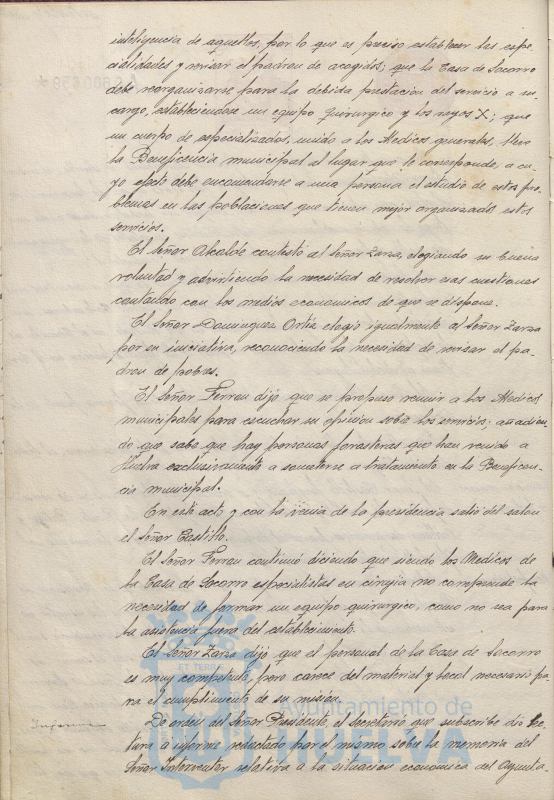 inteligencia de aquellos, por lo que es preciso establecer las espe-
cialidades y revisar el padron de acogidos; que la Casa de Socorro
debe reorganizarse para la debida prestacion del servicio a su
cargo, estableciendose un equipo quirurgico y los rayos X; que
un cuerpo de especializados, unido a los Medicos generales, lleve
la Beneficencia municipal al lugar que le corresponde, a cu-
yo efecto debe encomendarse a una persona el estudio de estos pro-
blemas en las poblaciones que tienen mejor organizados estos
servicios.
El Señor Alcalde contestó al Señor Zarza, elogiando su buena
voluntad y advirtiendo la necesidad de resolver esas cuestiones
contando con los medios economicos de que se dispone.
El Señor Dominguez Ortiz elogió igualmente al Señor Zarza
por su iniciativa, reconociendo la necesidad de revisar el pa-
dron de pobres.
El Señor Terrou dijo que se propuso reunir a los Medicos
municipales para escuchar su opinion sobre los servicios; añadien-
do que sabe que hay personas forasteras que han venido a
Huelva exclusivamente a someterse a tratamiento en la Beneficen-
cia municipal.
En este acto y con la venia de la presidencia salió del salon
el Señor Castillo.
El Señor Terrou continuó diciendo que siendo los Medicos de
la Casa de Socorro especialistas en cirujia no comprende la
necesidad de formar un equipo quirurgico, como no sea para
la asistencia fuera del establecimiento.
El Señor Zarza dijo que el personal de la Casa de Socorro
es muy competente, pero carece del material y local necesario pa-
ra el cumplimiento de su mision.
Informe
De orden del Señor Presidente, el Secretario que subscribe dió lec-
tura a informe redactado por el mismo sobre la memoria del
Señor Interventor relativa a la situacion economica del Ayunta-
ET TERRÆ
Ayuntamiento de
HUELVA